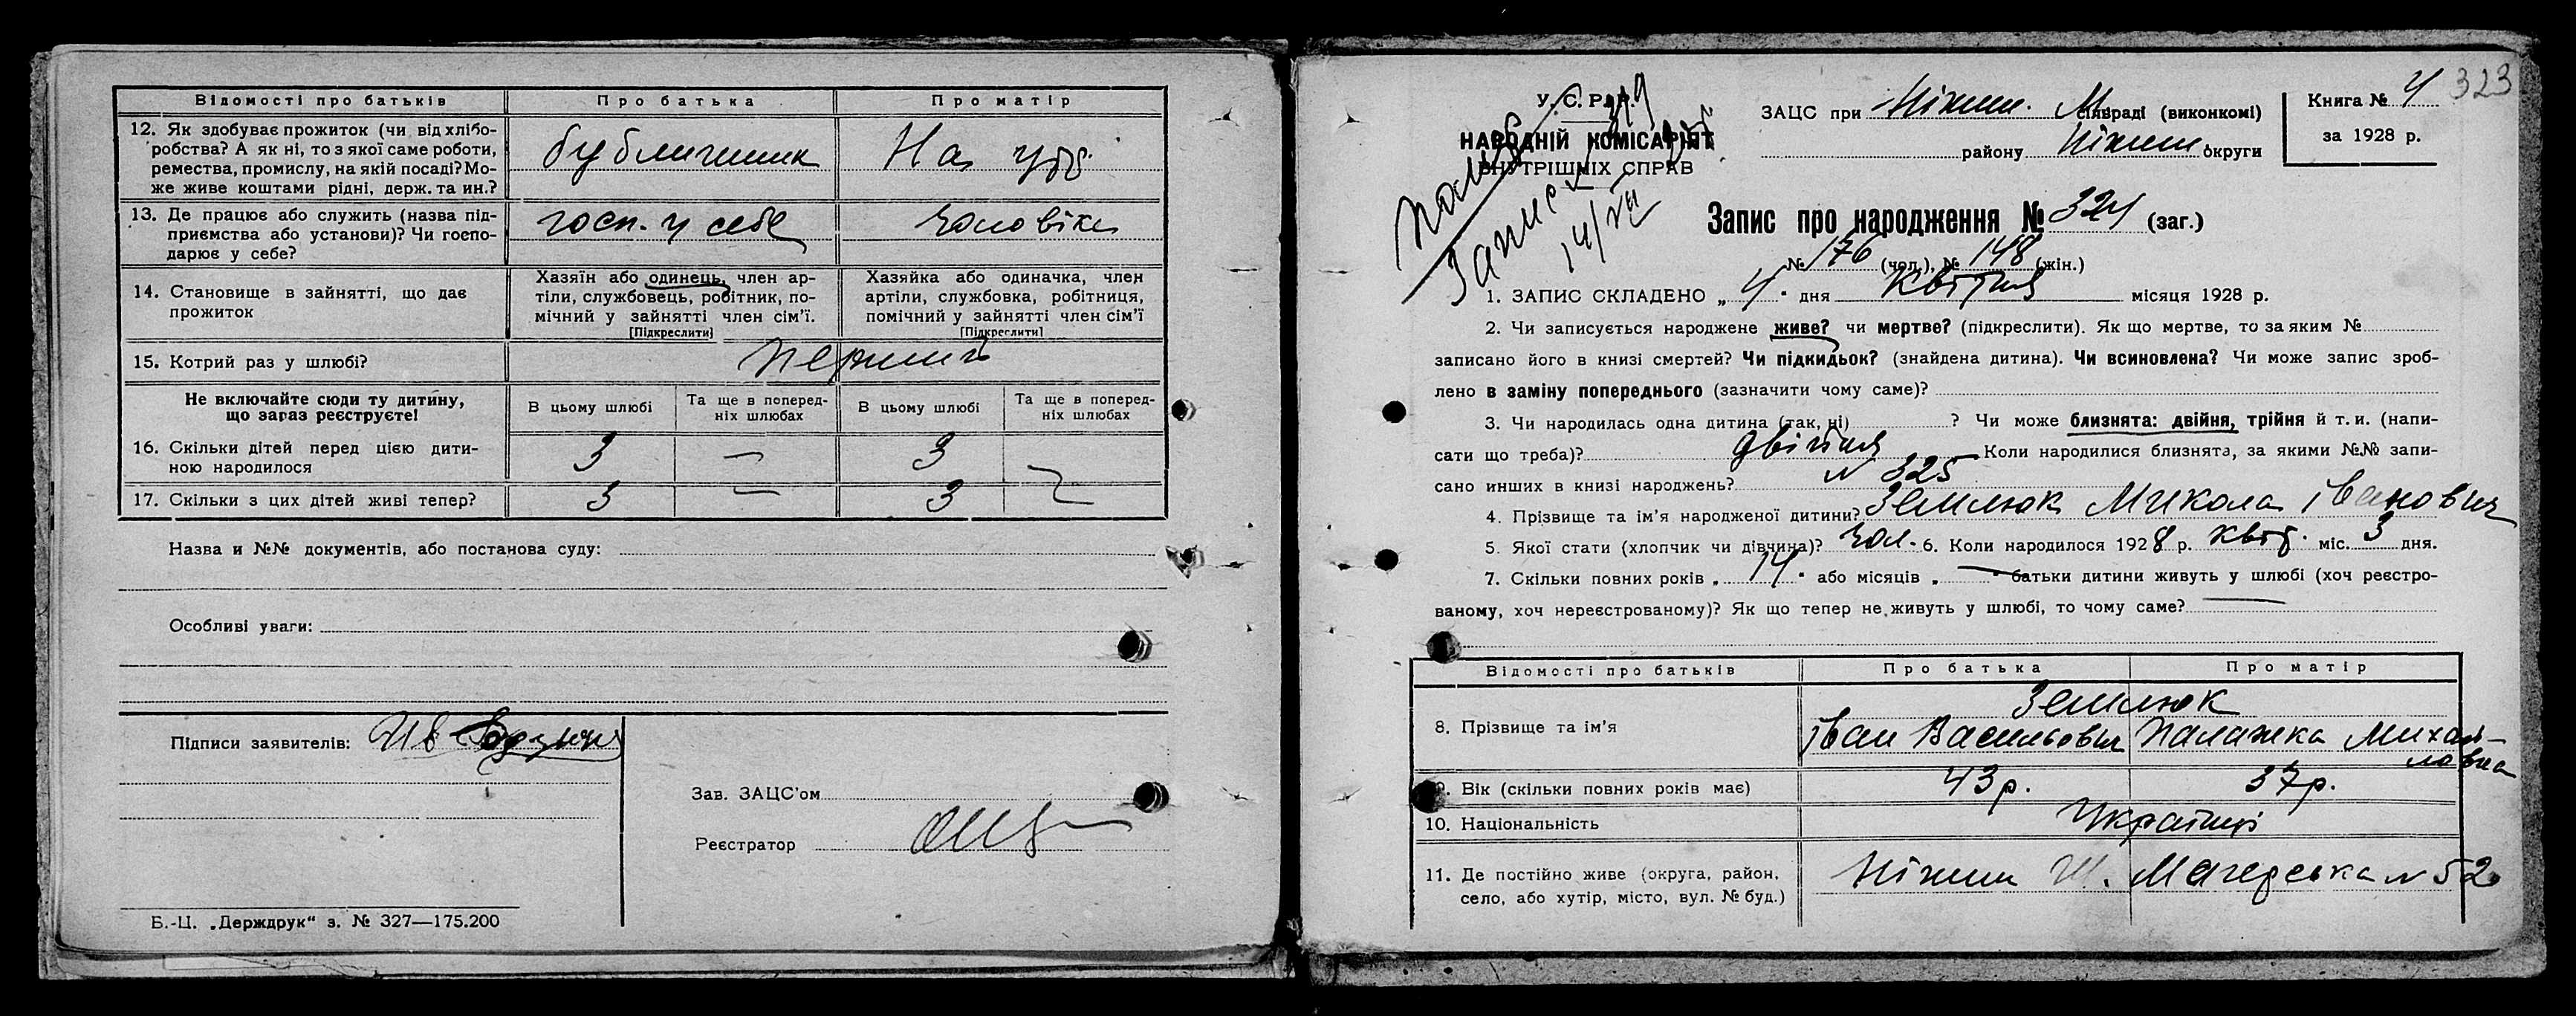 Відомості про батьків Про батька Про матір
12. Як здобуває прожиток (чи від хлібо- бубличник На утр.
робства? А як ні, то з якої саме роботи,
ремества, промислу, на якій посаді? Мо-
же живе коштами рідні, держ. та ин.?
13. Де працює або служить (назва під- госп. у себе чоловіка
приємства або установи)? Чи госпо-
дарює у себе?
14. Становище в зайнятті, що дає
прожиток
Хазяїн або одинець, член ар-
тіли, службовець, робітник, по-
мічний у зайнятті член сім'ї.
[Підкреслити]
Хазяйка або одиначка, член
артіли, службовка, робітниця,
помічний у зайнятті член сім'ї
[Підкреслити]
15. Котрий раз у шлюбі? перший
Не включайте сюди ту дитину,
що зараз реєструєте!
В цьому шлюбі
Та ще в поперед-
ніх шлюбах
В цьому шлюбі
Та ще в поперед-
ніх шлюбах
16. Скільки дітей перед цією дити- 3 — 3 —
ною народилося
17. Скільки з цих дітей живі тепер? 3 — 3 —
Назва и №№ документів, або постанова суду:
Особливі уваги:
Підписи заявителів:
Зав. ЗАЦС'ом
Реєстратор
Б.-Ц. „Держдрук“ з. № 327—175.200
323
У. С. Р. Р.
НАРОДНІЙ КОМІСАРІЯТ
ВНУТРІШНІХ СПРАВ
Запис
14/VII
ЗАЦС при Ніжин. М сільраді (виконкомі)
району Ніжин. округи
Книга № 4
за 1928 р.
Запис про народження № 324 (заг.)
№ 176 (чол.), № 148 (жін.)
1. ЗАПИС СКЛАДЕНО „ 4 “ дня Квітня місяця 1928 р.
2. Чи записується народжене живе? чи мертве? (підкреслити). Як що мертве, то за яким №
записано його в книзі смертей? Чи підкидьок? (знайдена дитина). Чи всиновлена? Чи може запис зроб-
лено в заміну попереднього (зазначити чому саме)?
3. Чи народилась одна дитина (так, ні) ? Чи може близнята: двійня, трійня й т. и. (напи-
сати що треба)? двійня Коли народилися близнята, за якими №№ запи-
сано инших в книзі народжень? № 325
4. Прізвище та ім'я народженої дитини?Землюк Микола Іванович
5. Якої стати (хлопчик чи дівчина)? Чол. 6. Коли народилося 1928 р. квіт. міс. 3 дня.
7. Скільки повних років „ 14 “ або місяців „ — “ батьки дитини живуть у шлюбі (хоч реєстро-
ваному, хоч нереєстрованому)? Як що тепер не живуть у шлюбі, то чому саме? —
Відомості про батьків Про батька Про матір
Землюк
8. Прізвище та ім'я Іван Васильович Палажка Михай-
ловна
9. Вік (скільки повних років має) 43 р. 37 р.
10. Національність Українці
11. Де постійно живе (округа, район, Ніжин Ш. Магерська № 52
село, або хутір, місто, вул. № буд.)